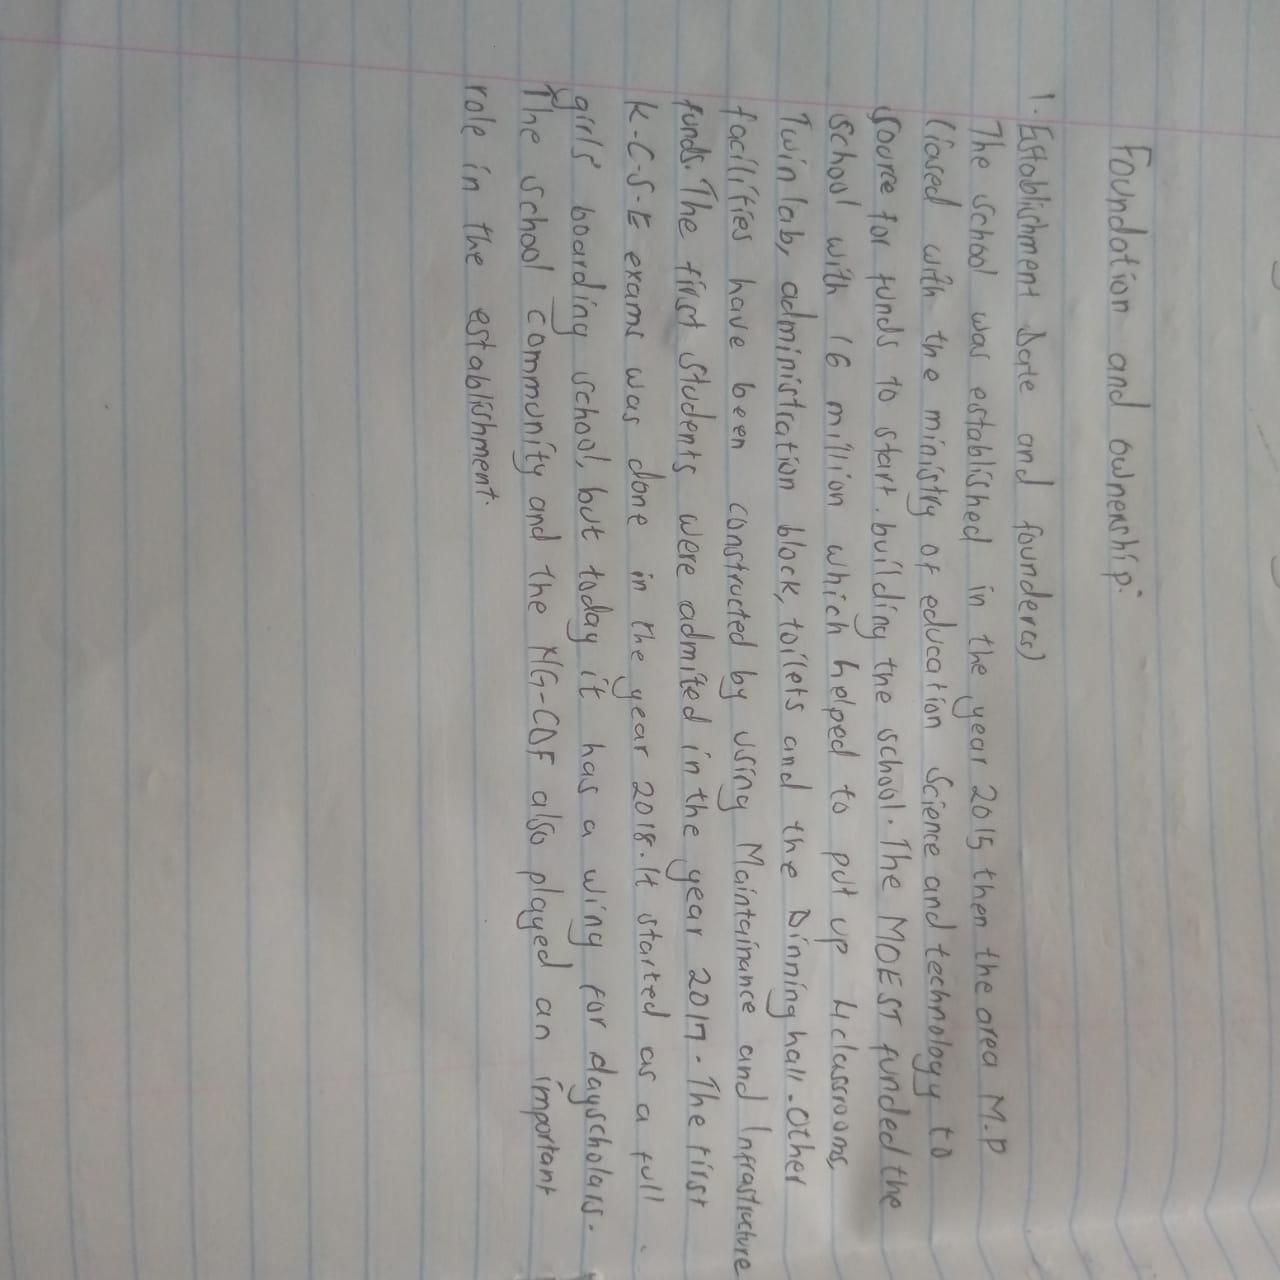 Foundation and ownership:
1. Establishment Date and founder(s)
The school was established in the year 2015 then the area M.P
liased with the ministry of education Science and technology to
source for funds to start building the school. The MOEST funded the
school with 16 million which helped to put up 4 classrooms,
Twin lab, administration block, toilets and the Dinning hall. Other
facilities have been constructed by using Maintainance and Infrastructure
funds. The first students were admited in the year 2017. The first
K.C.S.E exams was done in the year 2018. It started as a full
girls' boarding school, but today it has a wing for dayscholars.
The school community and the NG-CDF also played an important
role in the establishment.